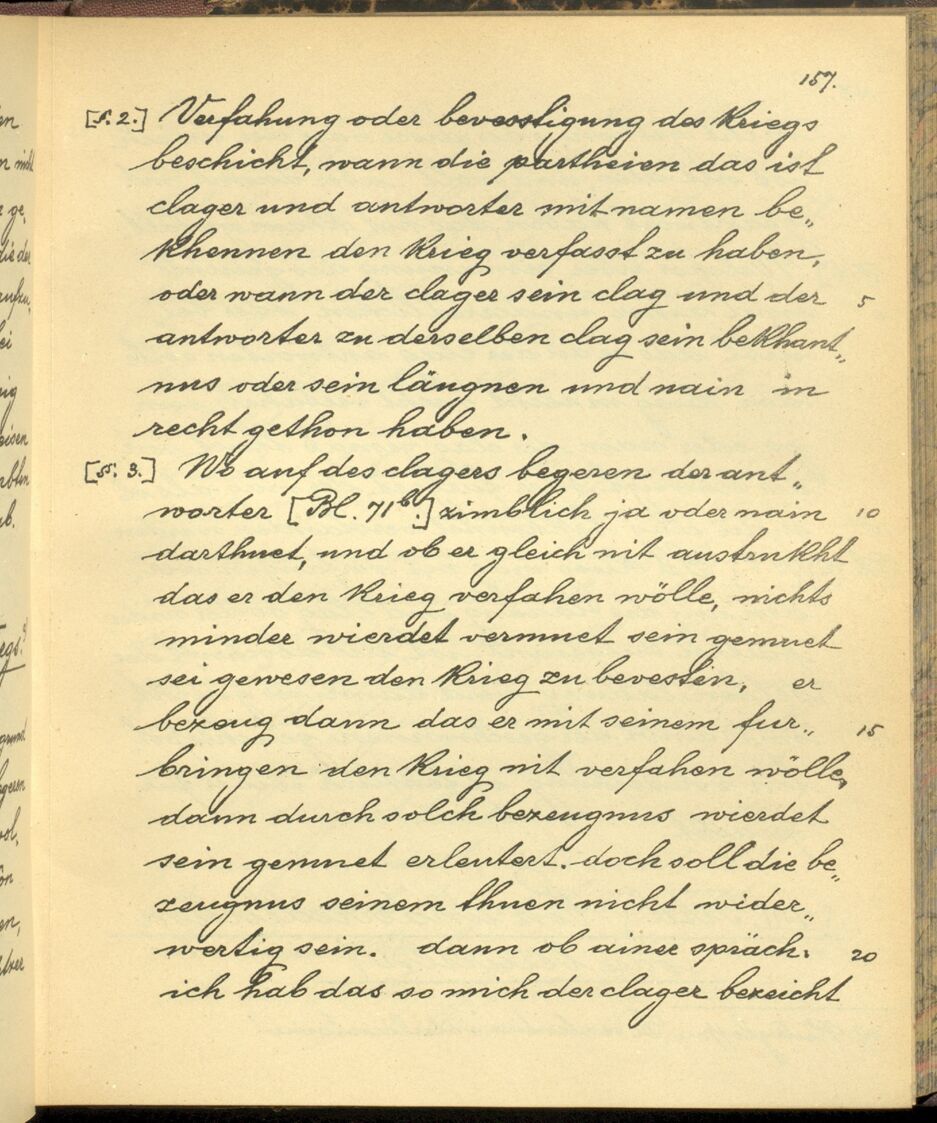 157.
[§. 2.] Verfahung oder bevesstigung des kriegs
beschicht, wann die partheien das ist
clager und antworter mit namen be„
khennen den krieg verfasst zu haben,
oder wann der clager sein clag und der 5
antworter zu derselben clag sein bekhant„
nus oder sein läugnen und nain in
recht gethon haben.
[§. 3.] Wo auf des clagers begeren der ant„
worter [Bl. 71b.] zimblich ja oder nain 10
darthuet, und ob er gleich nit austrukht
das er den krieg verfahen wölle, nichts
minder wierdet vermuet sein gemuet
sei gewesen den krieg zu bevesten, er
bezeug dann das er mit seinem fur„ 15
bringen den krieg nit verfahen wölle,
dann durch solch bezeugnus wierdet
sein gemuet erleutert. doch soll die be„
zeugnus seinem thuen nicht wider„
wertig sein. dann ob ainer spräch: 20
ich hab das so mich der clager bezeicht